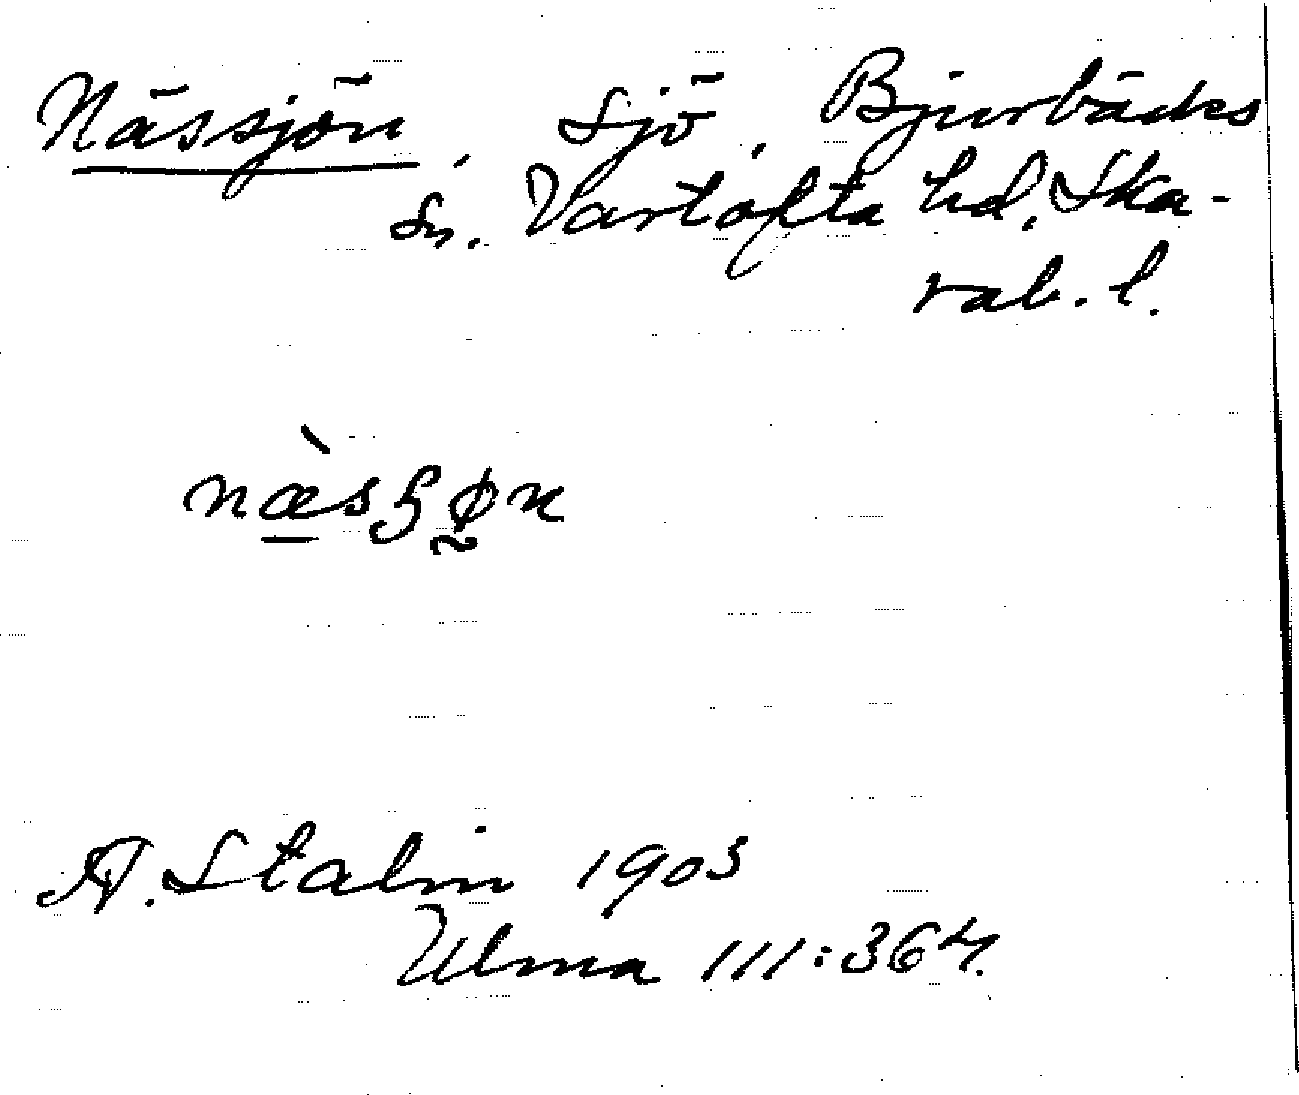 Nässjön, Sjö, Bjurbäcks
sn. Vartofta hd, Ska-
rab. l.
A. Stalin 1903
Ulma 111:364.